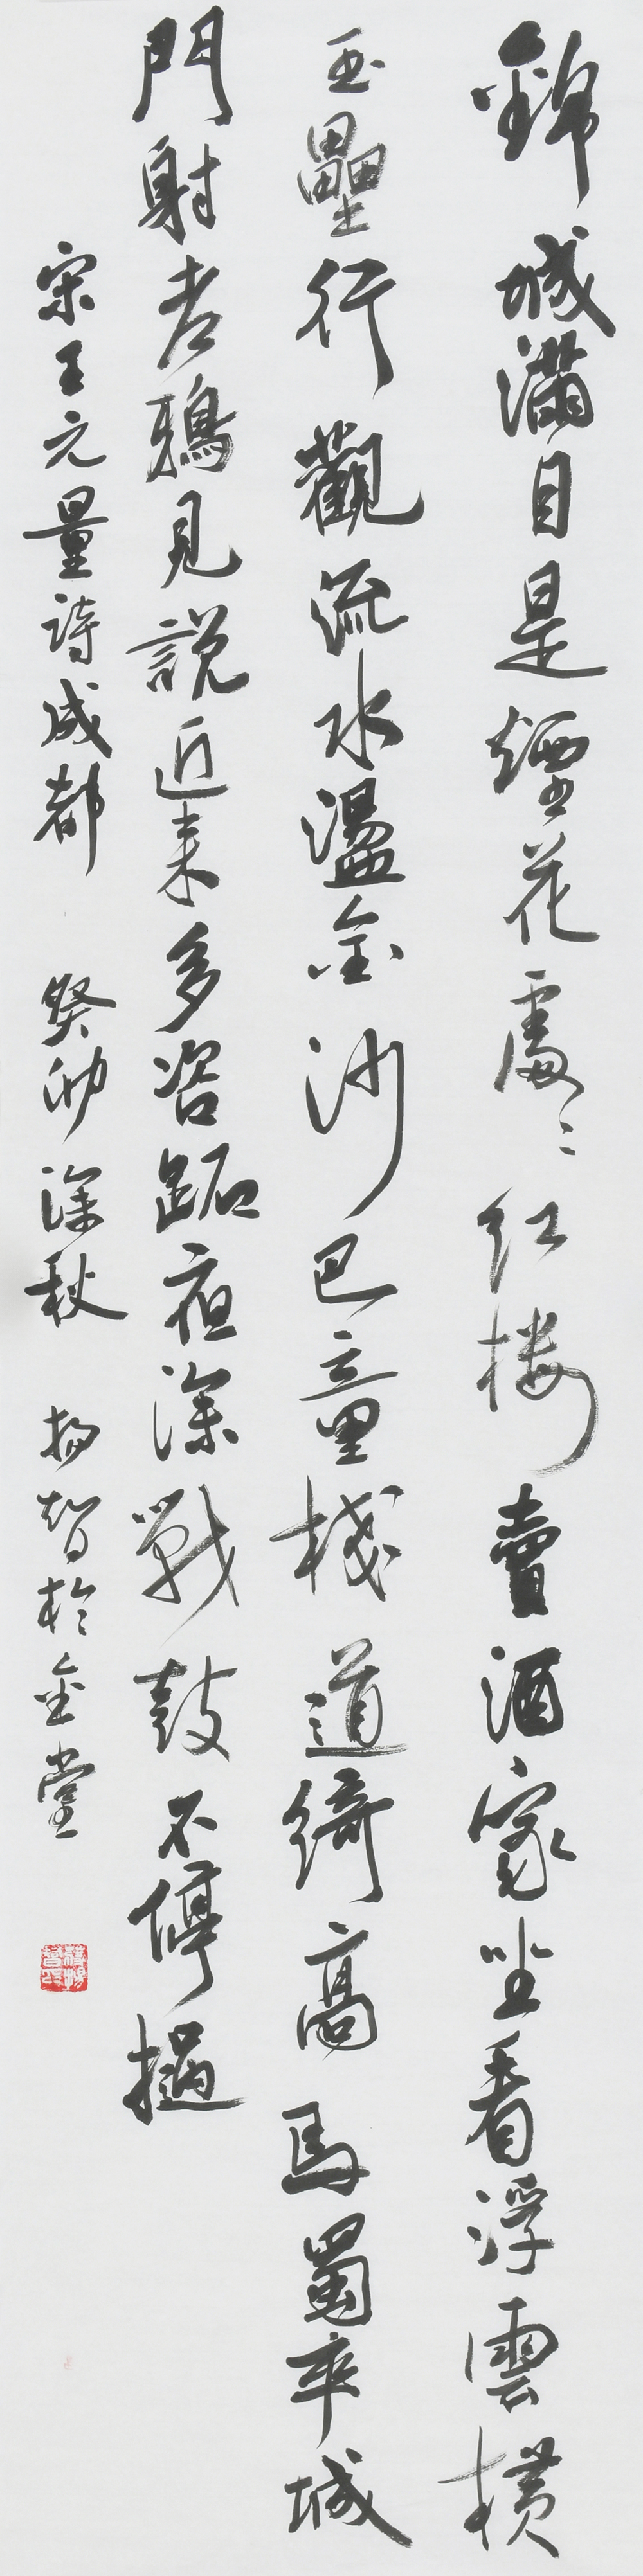 錦城滿目是煙花處〻红楼賣酒家坐看浮雲横
玉壘行觀流水盪金沙巴童棧道綺高馬蜀卒城
門射老鴉見說近来多咨跖夜深戰鼓不停撾
宋王元量詩成都 癸卯深秋 揚智於金堂